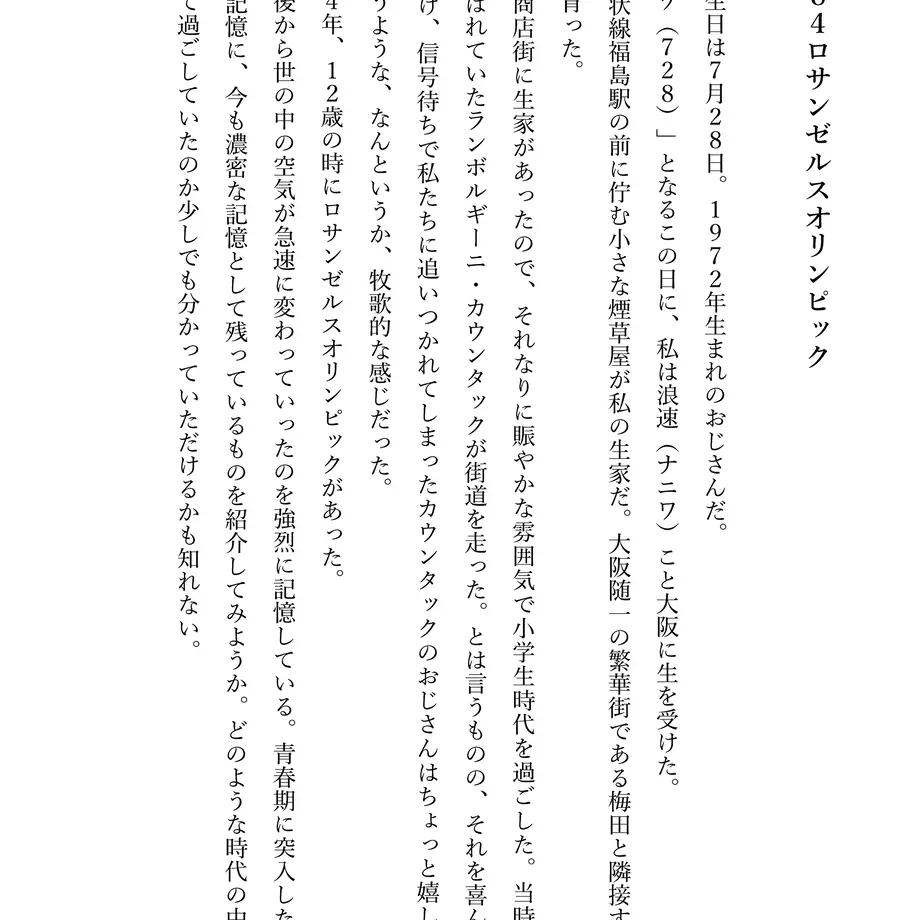 84ロサンゼルスオリンピック
生日は7月28日。1972年生まれのおじさんだ。
ワ（728）」となるこの日に、私は浪速（ナニワ）こと大阪に生を受けた。
状線福島駅の前に佇む小さな煙草屋が私の生家だ。大阪随一の繁華街である梅田と隣接す
育った。
商店街に生家があったので、それなりに賑やかな雰囲気で小学生時代を過ごした。当時
ばれていたランボルギーニ・カウンタックが街道を走った。とは言うものの、それを喜ん
け、信号待ちで私たちに追いつかれてしまったカウンタックのおじさんはちょっと嬉し
うような、なんというか、牧歌的な感じだった。
4年、12歳の時にロサンゼルスオリンピックがあった。
後から世の中の空気が急速に変わっていったのを強烈に記憶している。青春期に突入した
記憶に、今も濃密な記憶として残っているものを紹介してみようか。どのような時代の中
て過ごしていたのか少しでも分かっていただけるかも知れない。